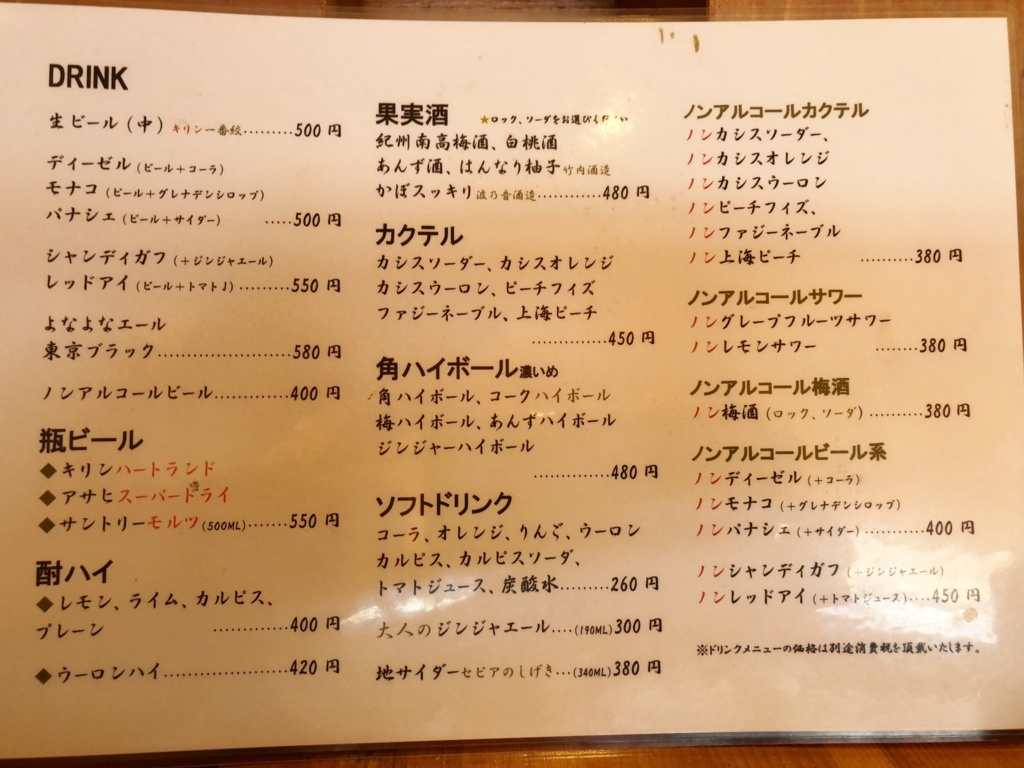 DRINK
生ビール（中）キリン一番絞.........500 円
ディーゼル（ビール＋コーラ）
モナコ（ビール＋グレナデンシロップ）
パナシェ（ビール＋サイダー）.....500 円
シャンディガフ（＋ジンジャエール）
レッドアイ（ビール＋トマトJ）.........550 円
よなよなエール
東京ブラック.......................580 円
ノンアルコールビール.............400 円
瓶ビール
◆キリンハートランド
◆アサヒスーパードライ
◆サントリーモルツ(500ML).......550 円
酎ハイ
◆レモン、ライム、カルピス、
プレーン .............400 円
◆ウーロンハイ......................420 円
果実酒 ★ロック、ソーダをお選びください
紀州南高梅酒、白桃酒
あんず酒、はんなり柚子竹内酒造
かぼスッキリ波乃音酒造............480 円
カクテル
カシスソーダー、カシスオレンジ
カシスウーロン、ピーチフィズ
ファジーネーブル、上海ピーチ
..............450 円
角ハイボール濃いめ
角ハイボール、コークハイボール
梅ハイボール、あんずハイボール
ジンジャーハイボール
..............480 円
ソフトドリンク
コーラ、オレンジ、りんご、ウーロン
カルピス、カルピスソーダ、
トマトジュース、炭酸水.........260 円
大人のジンジャエール....(190ML)300 円
地サイダーセピアのしげき...(340ML)380 円
ノンアルコールカクテル
ノンカシスソーダー、
ノンカシスオレンジ
ノンカシスウーロン
ノンピーチフィズ、
ノンファジーネーブル
ノン上海ピーチ ..........380 円
ノンアルコールサワー
ノングレープフルーツサワー
ノンレモンサワー ........380 円
ノンアルコール梅酒
ノン梅酒（ロック、ソーダ）..........380 円
ノンアルコールビール系
ノンディーゼル（＋コーラ）
ノンモナコ（＋グレナデンシロップ）
ノンパナシェ（＋サイダー）...........400 円
ノンシャンディガフ（＋ジンジャエール）
ノンレッドアイ（＋トマトジュース）....450 円
※ドリンクメニューの価格は別途消費税を頂戴いたします。